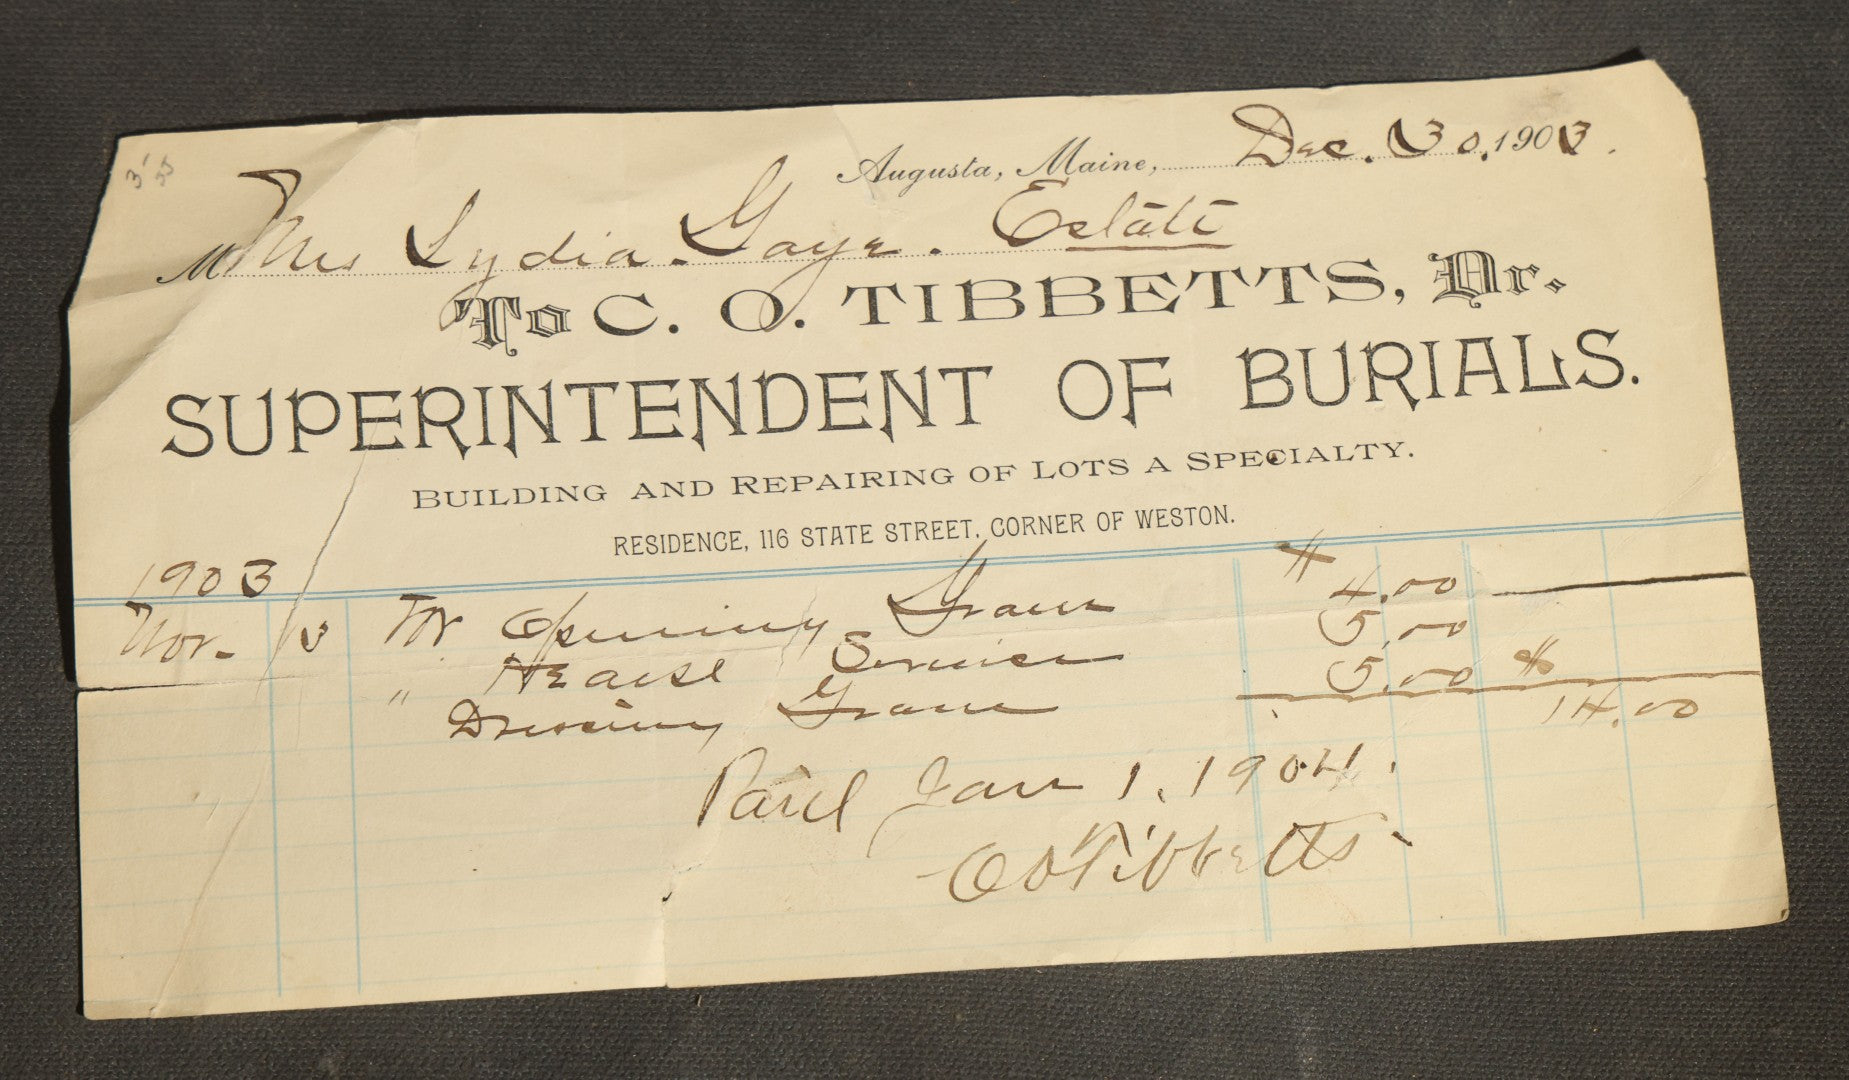 Augusta, Maine, Dec. 30, 1903.
M Mrs Lydia. Gaye. Estate
To C. O. TIBBETTS, Dr.
SUPERINTENDENT OF BURIALS.
BUILDING AND REPAIRING OF LOTS A SPECIALTY.
RESIDENCE, 116 STATE STREET, CORNER OF WESTON.
1903
Nov. For Opening Grave $ 4.00
" Hearse Service 5.00
Dressing Grave 5.00 $
14.00
Paid Jan 1, 1904.
C O Tibbetts.